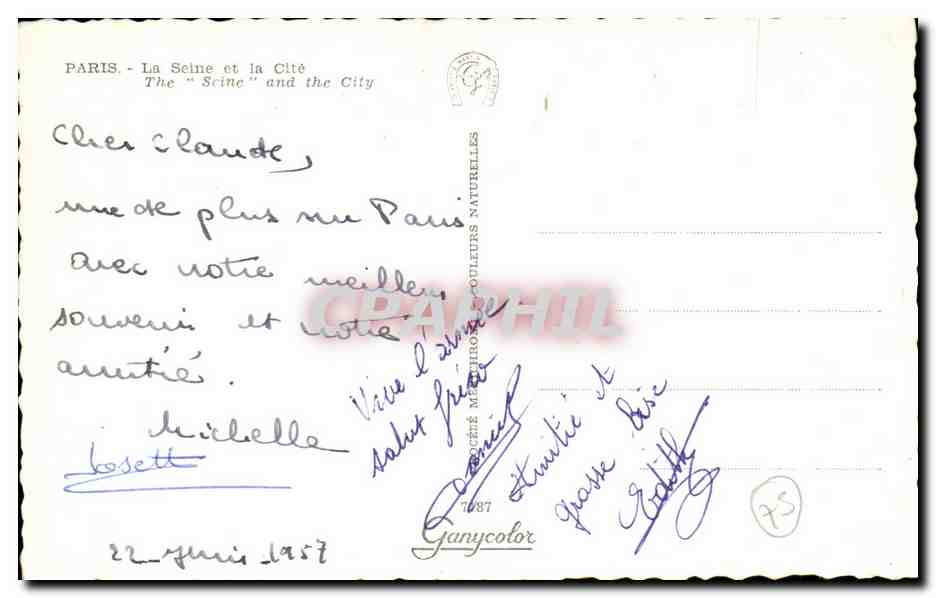 PARIS. - La Seine et la Cité
The "Seine" and the City
Cher Claude,
une de plus sur Paris
avec notre meilleur
souvenir et notre
amitié.
Michelle
Josette
22 Juin 1957
Vive l'armée
salut frérot
Daniel
Amitié et
grosse bise
Edith
COULEURS NATURELLES
7 87
Ganycolor
75
CPAPHIL